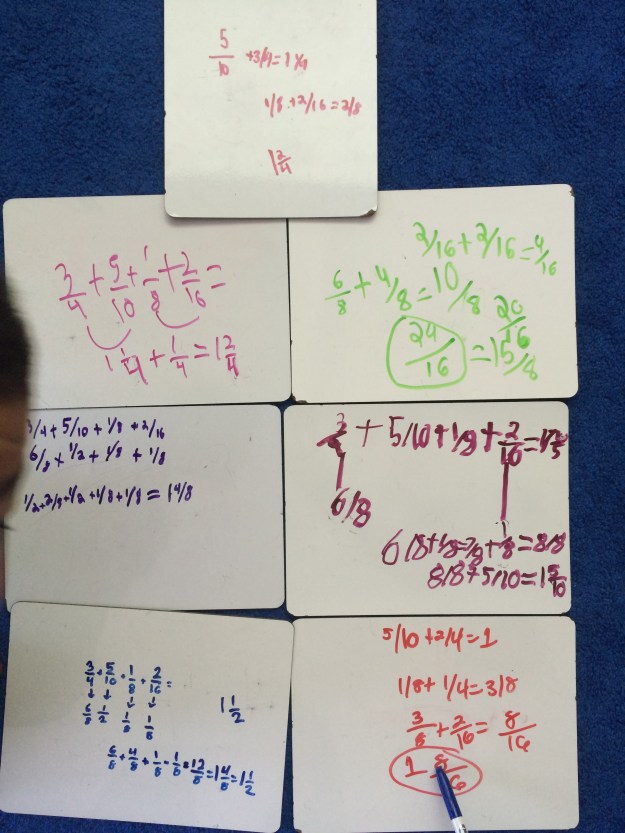 5/10 +3/4=1 1/4
1/8+2/16=2/8
1 2/4
3/4+5/10+1/8+2/16=
1 1/4+1/4=1 2/4
2/16+2/16=4/16
6/8+4/8=10/8
20/16
24/16=1 5/8
3/4+5/10+1/8+2/16
6/8+1/2+1/8+1/8
1/2+2/8+1/2+1/8+1/8=1 4/8
+5/10+1/8+2/16=
6/8
6/8+1/8=7/8+1/8=8/8
8/8+5/10=1 5/10
3/4+5/10+1/8+2/16=
6/8 1/2 1/8 1/8
1 1/2
6/8+4/8+1/8+1/8=12/8=1 4/8=1 1/2
5/10+2/4=1
1/8+1/4=3/8
3/8+2/16=8/16
1 8/16